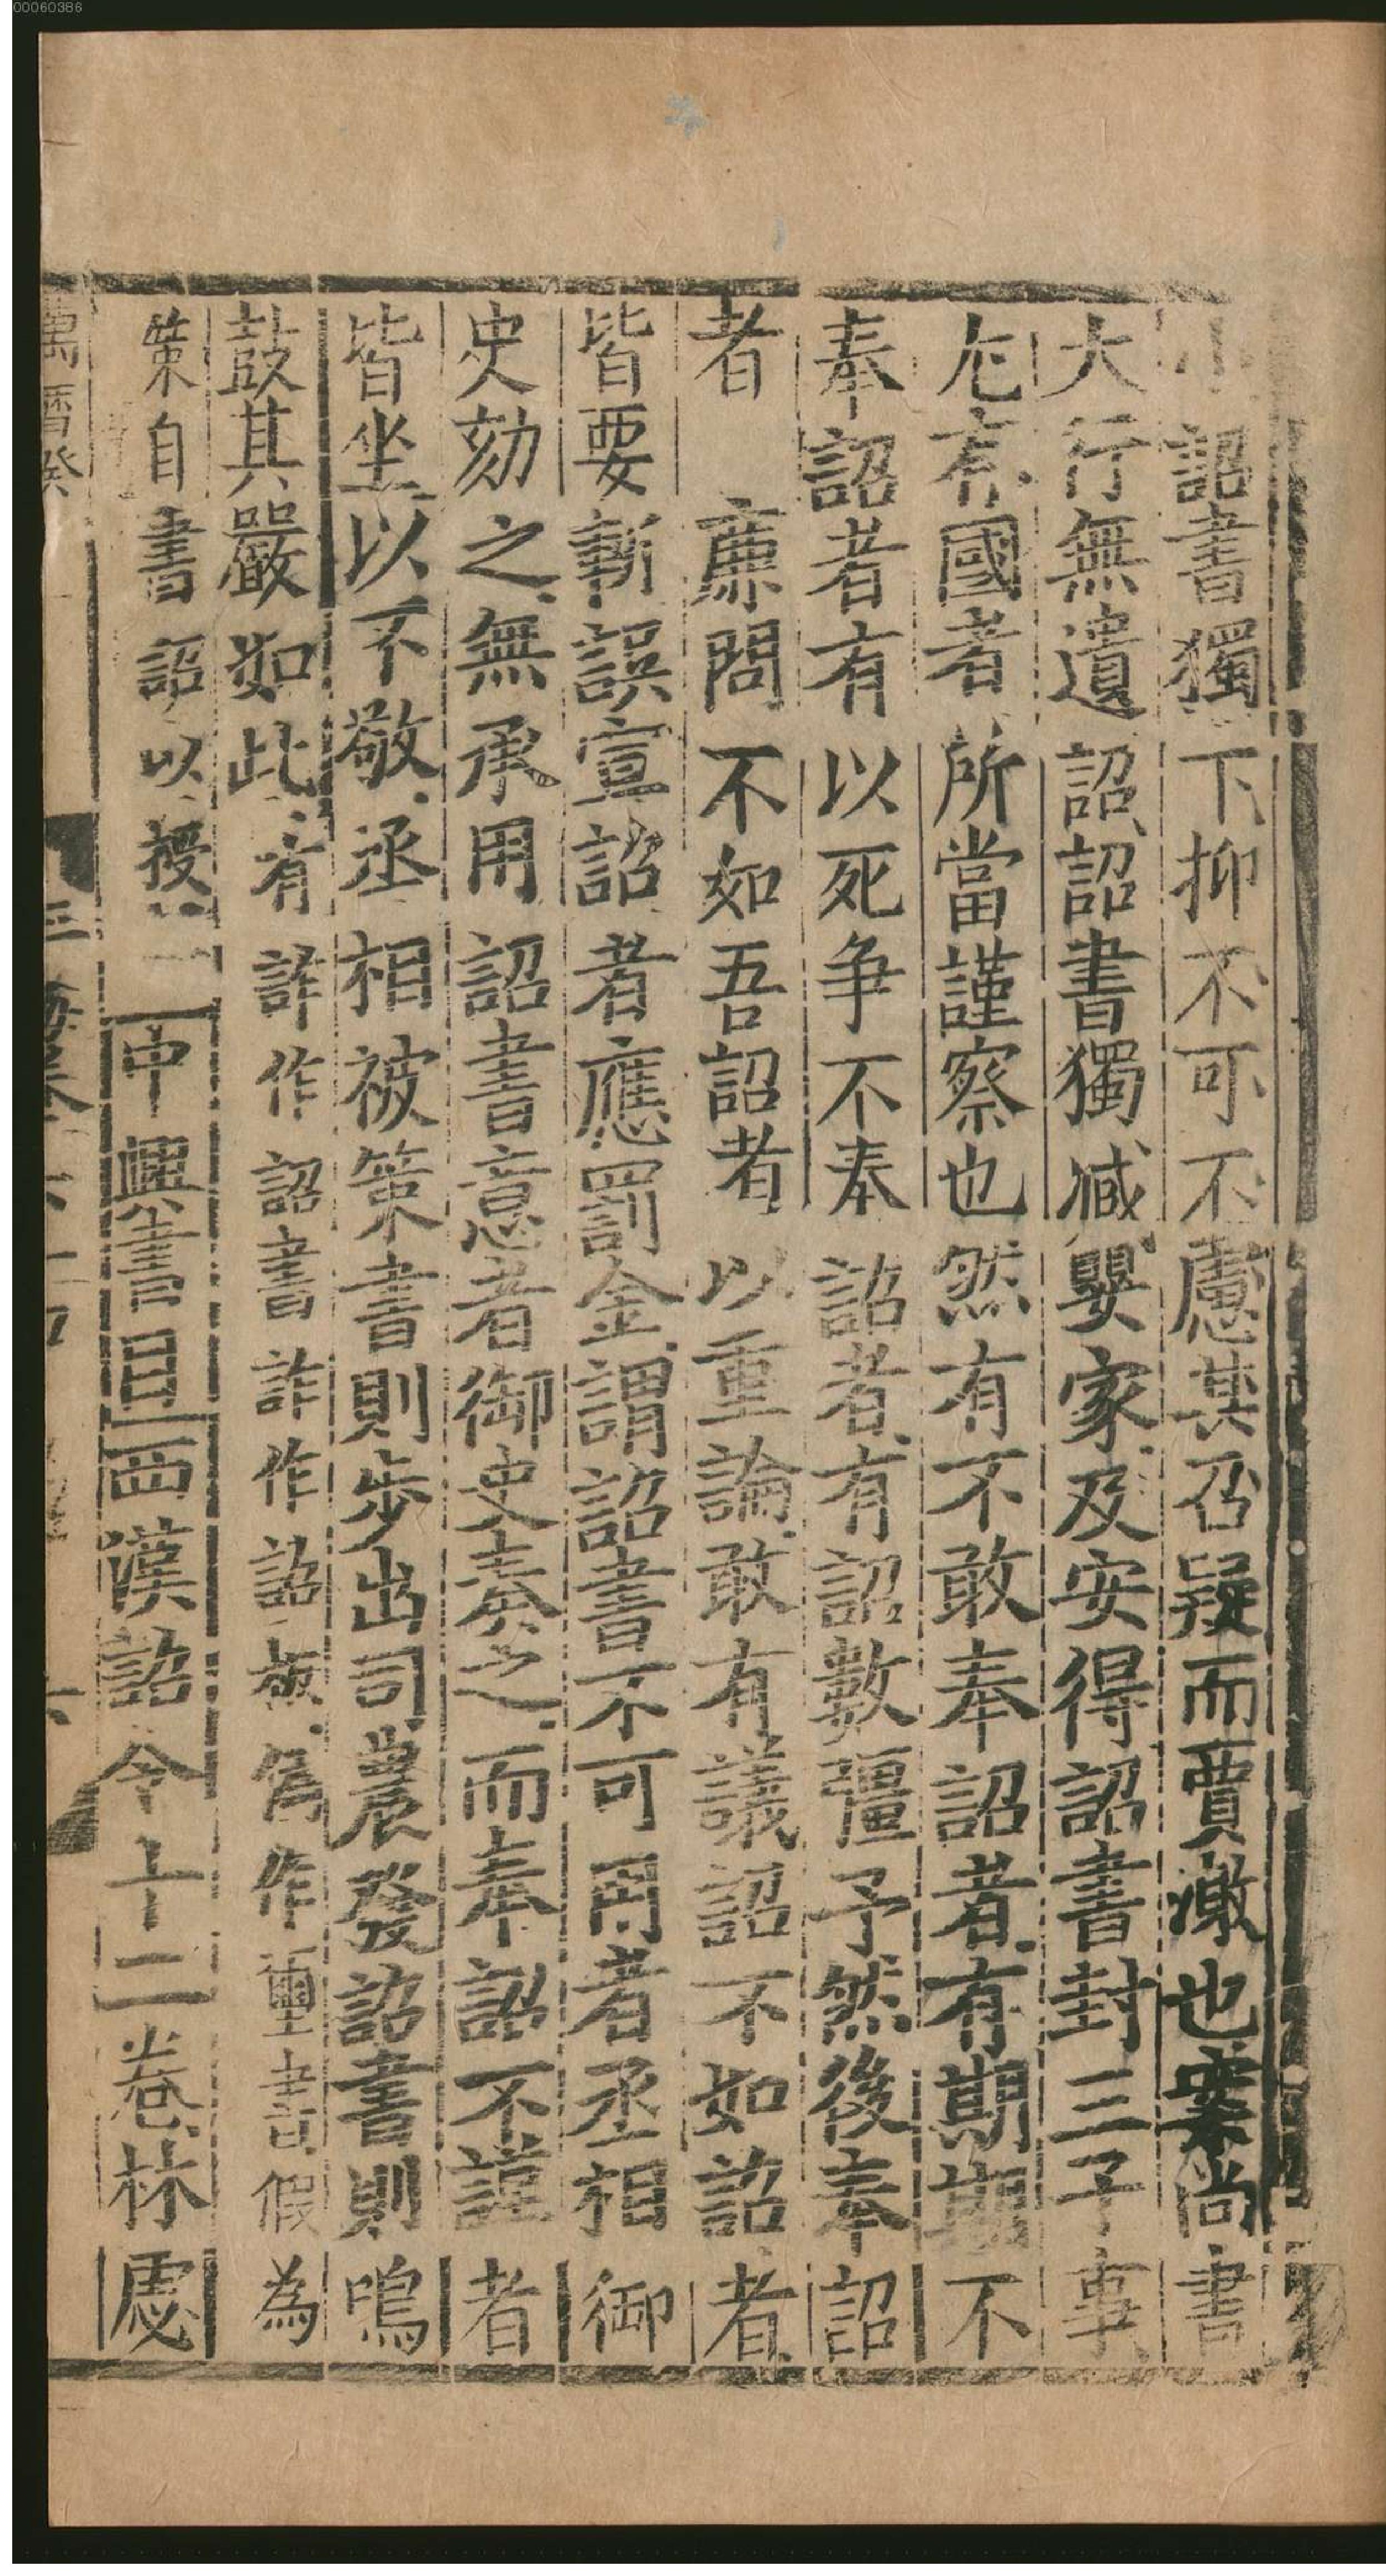 00060386
小詔書獨下抑不可不慮其否疑而賈激也案尚書
大行無遺詔詔書獨臧嬰家及安得詔書封三子事
凡有國者所當謹察也然有不敢奉詔者有期期不
奉詔者有以死争不奉詔者有詔數彊予然後奉詔
者廉問不如吾詔者以重論敢有議詔不如詔者
皆要斬誤宣詔者應罰金謂詔書不可用者丞相御
史劾之無承用詔書意者御史奏之而奉詔不謹者
皆坐以不敬丞相被策書則步出司農發詔書則鳴
鼓其嚴如此有詐作詔書詐作詔板偽作璽書假為
策自書詔以授中興書目西漢詔令十二卷林虙
萬曆癸